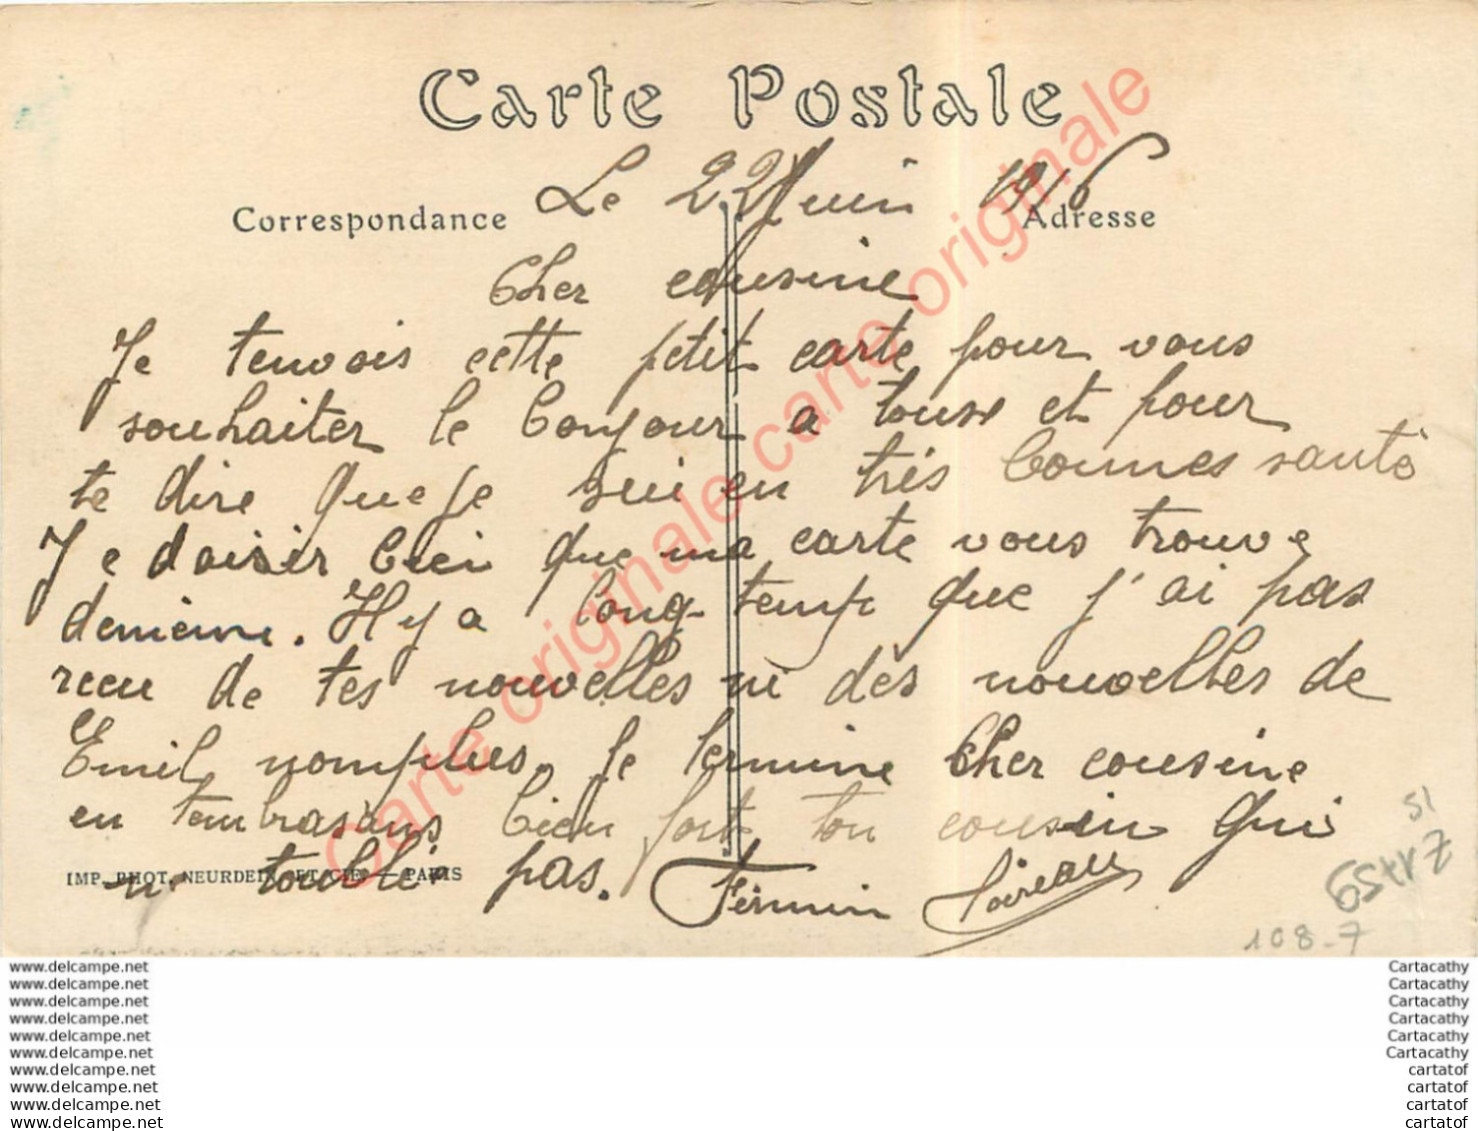 Carte Postale
Le 22 Juin 1916
Correspondance
Adresse
Cher cousine
Je tenvois cette petit carte pour vous
souhaiter le bonjour a tous et pour
te dire que je sui en très bonnes santé
Je daisir bien que ma carte vous trouve
de Il y a longtemp que j'ai pas
recu de tes nouvelles ni des nouvelles de
Emil nomplus. Je termine Cher cousine
en tembrasans bien fort ton cousin qui
n' toublie pas. Firmin Loireau
IMP. PHOT. NEURDEIN ET CIE. — PARIS
51
65447
108-7
Carte originale carte originale carte originale
www.delcampe.net
www.delcampe.net
www.delcampe.net
www.delcampe.net
www.delcampe.net
www.delcampe.net
www.delcampe.net
www.delcampe.net
www.delcampe.net
www.delcampe.net
Cartacathy
Cartacathy
Cartacathy
Cartacathy
Cartacathy
Cartacathy
cartatof
cartatof
cartatof
cartatof